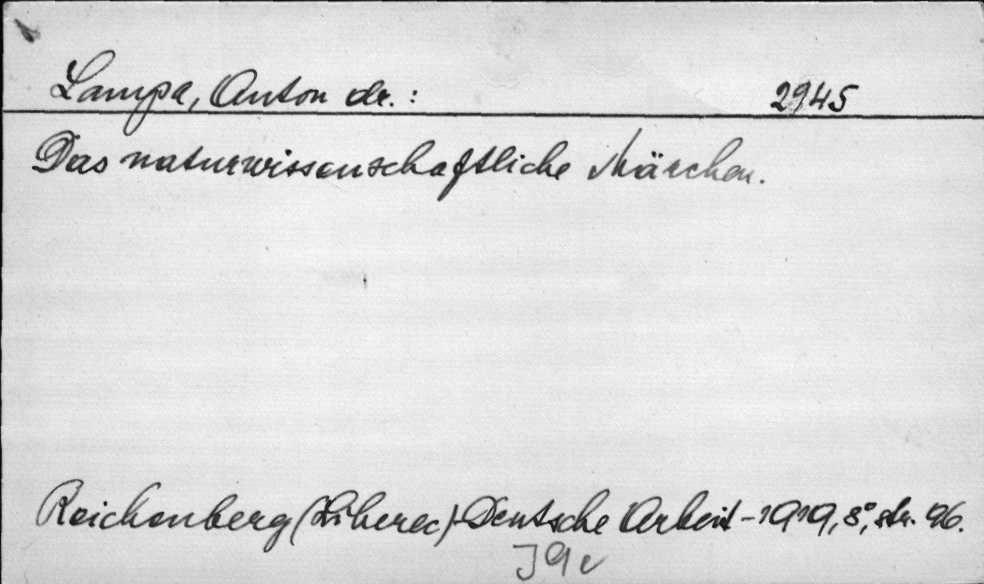 Lampa, Anton dr.: 2945
Das naturwissenschaftliche Märchen.
Reichenberg (Liberec)-Deutsche Arbeit-1919, 8°, str. 96.
J9c